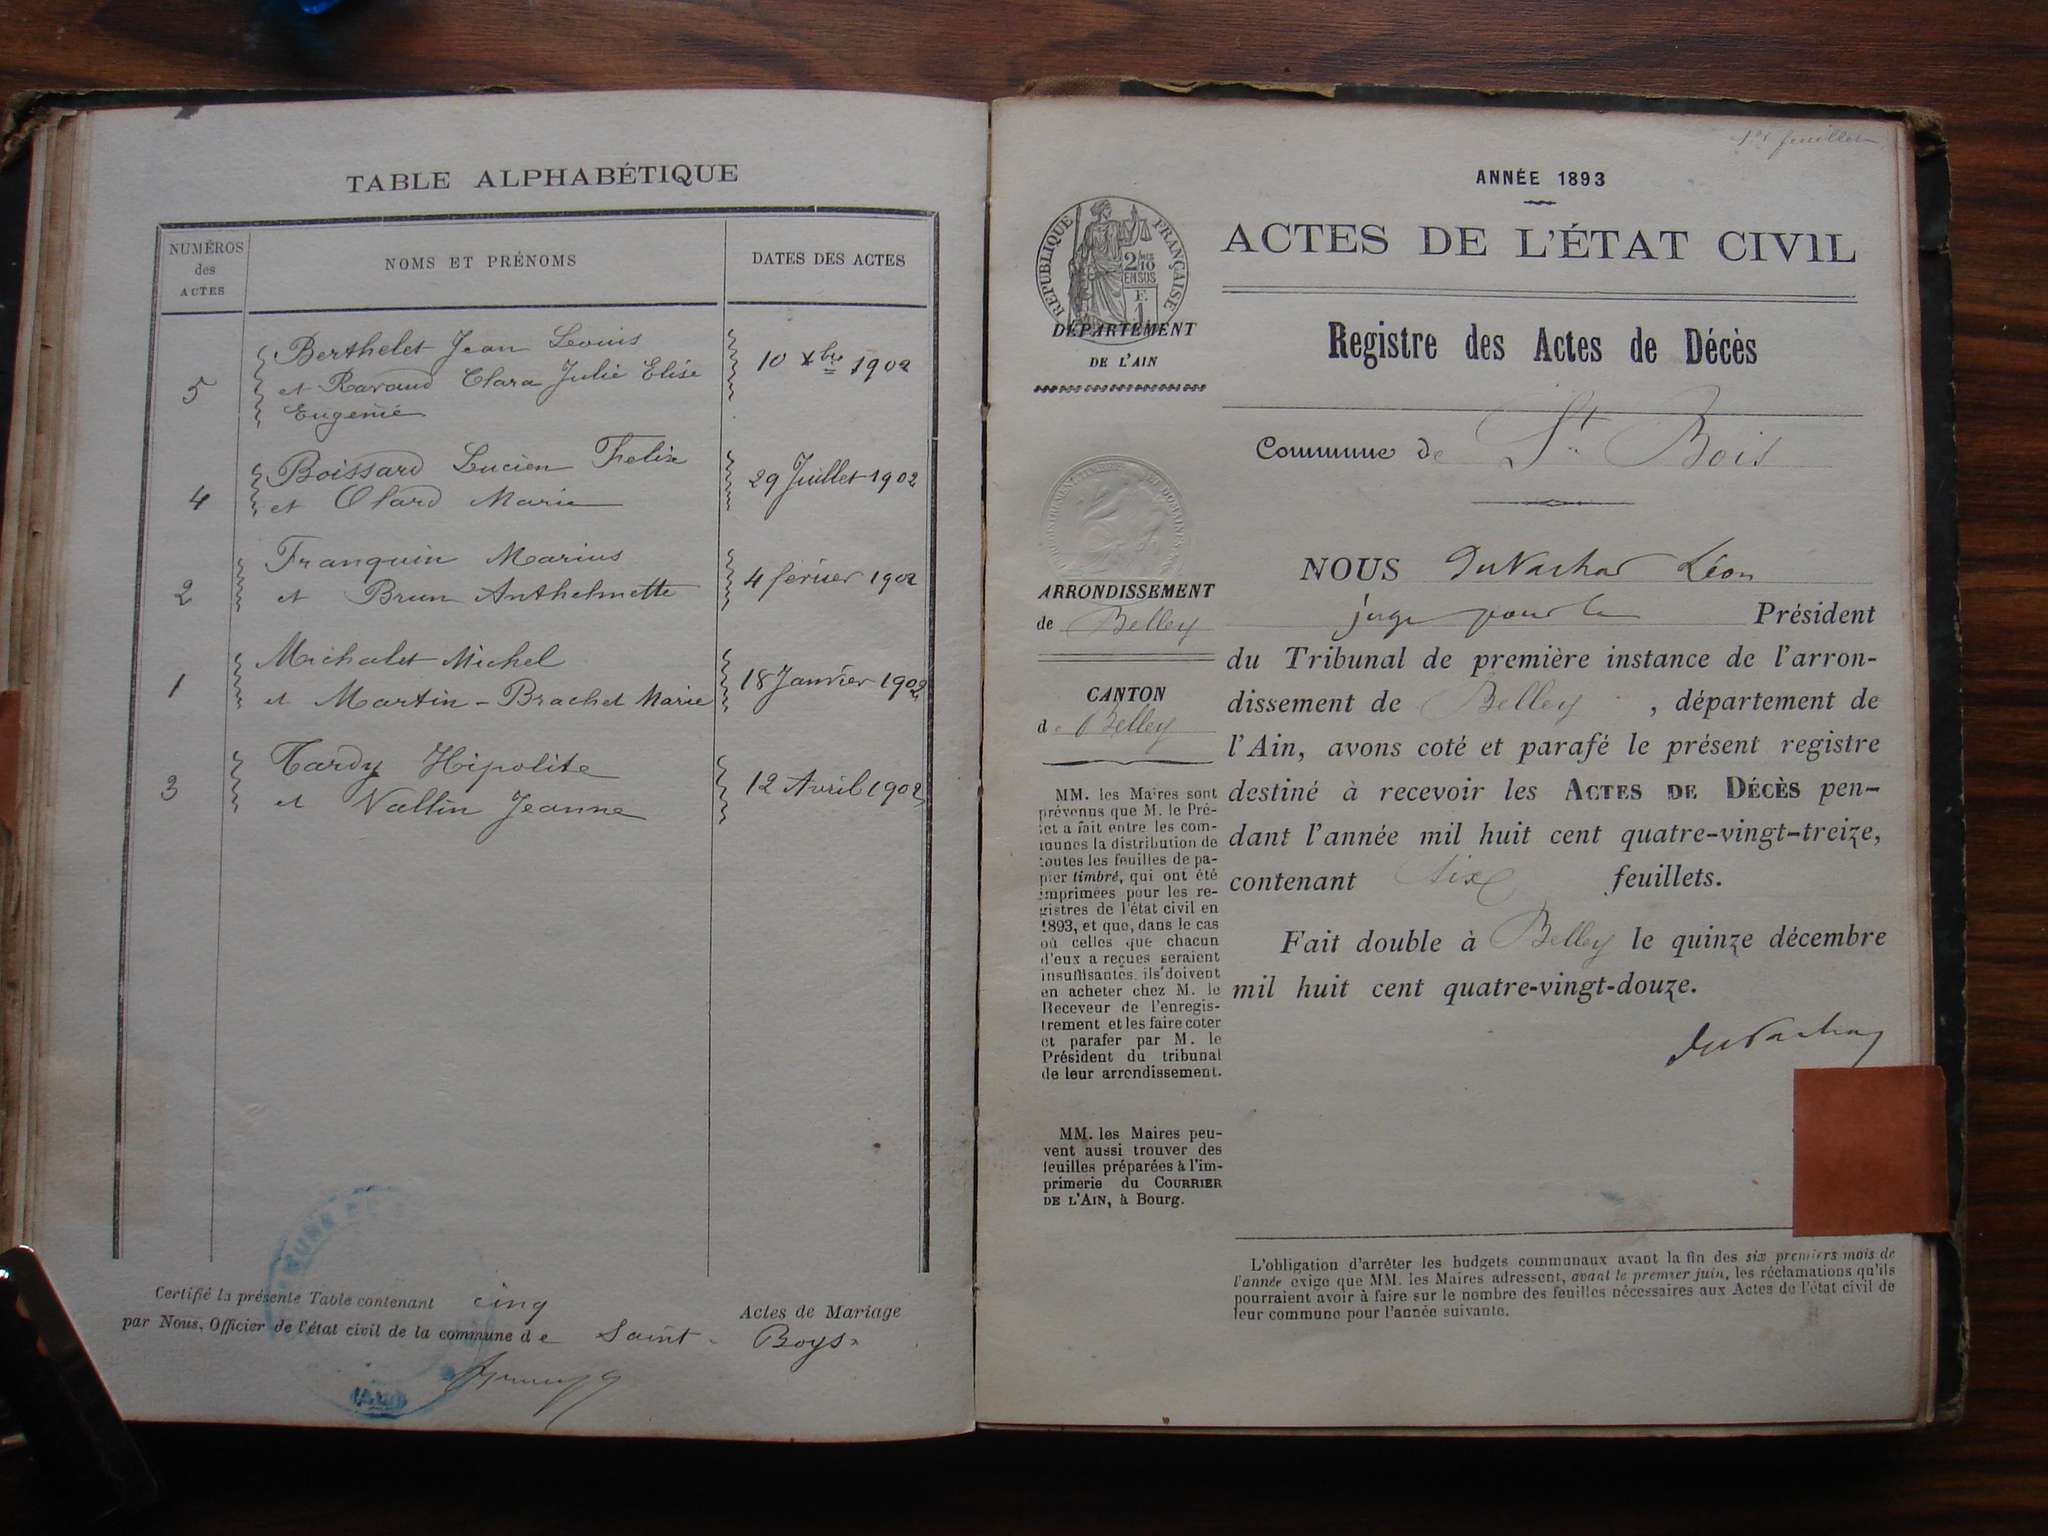 TABLE ALPHABÉTIQUE
NUMÉROS des ACTES
NOMS ET PRÉNOMS
DATES DES ACTES
5
Berthelet Jean Louis
et Ravaud Clara Julie Elise
Eugenie
10 Xbre 1902
4
Boissard Lucien Felix
et Olard Marie
29 Juillet 1902
2
Franquin Marius
et Brun Anthelmette
4 février 1902
1
Michalet Michel
et Martin-Brachet Marie
18 Janvier 1902
3
Tardy Hipolite
et Vallin Jeanne
12 Avril 1902
Certifié la présente Table contenant cinq Actes de Mariage
par Nous, Officier de l'état civil de la commune de Saint-Boys.
1er feuillet
ANNÉE 1893
ACTES DE L'ÉTAT CIVIL
RÉPUBLIQUE FRANÇAISE
2/10
EN SUS
F.
1
DÉPARTEMENT
DE L'AIN
Registre des Actes de Décès
Commune de St Bois
ARRONDISSEMENT
de Belley
CANTON
de Belley
NOUS Léon
juge pour le Président
du Tribunal de première instance de l'arron-
dissement de Belley, département de
l'Ain, avons coté et parafé le présent registre
destiné à recevoir les ACTES DE DÉCÈS pen-
dant l'année mil huit cent quatre-vingt-treize,
contenant six feuillets.
Fait double à Belley le quinze décembre
mil huit cent quatre-vingt-douze.
MM. les Maires sont
prévenus que M. le Pré-
fet a fait entre les com-
munes la distribution de
toutes les feuilles de pa-
pier timbré, qui ont été
imprimées pour les re-
gistres de l'état civil en
1893, et que, dans le cas
où celles que chacun
d'eux a reçues seraient
insuffisantes, ils doivent
en acheter chez M. le
Receveur de l'enregis-
trement et les faire coter
et parafer par M. le
Président du tribunal
de leur arrondissement.
MM. les Maires peu-
vent aussi trouver des
feuilles préparées à l'im-
primerie du COURRIER
DE L'AIN, à Bourg.
L'obligation d'arrêter les budgets communaux avant la fin des six premiers mois de
l'année exige que MM. les Maires adressent, avant le premier juin, les réclamations qu'ils
pourraient avoir à faire sur le nombre des feuilles nécessaires aux Actes de l'état civil de
leur commune pour l'année suivante.